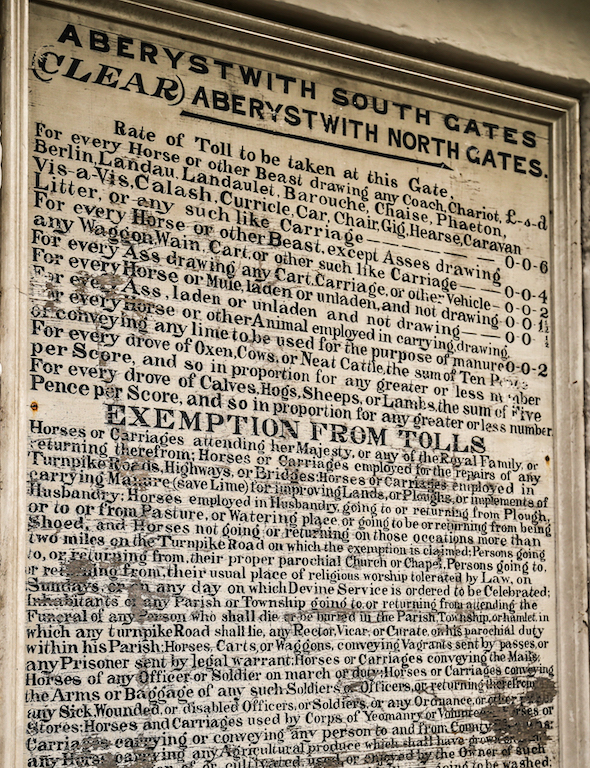 ABERYSTWITH SOUTH GATES
(CLEAR) ABERYSTWITH NORTH GATES.
Rate of Toll to be taken at this Gate,
For every Horse or other Beast drawing any Coach, Chariot, £-s-d
Berlin, Landau, Landaulet, Barouche, Chaise, Phaeton,
Vis-a-Vis, Calash, Curricle, Car, Chair, Gig, Hearse, Caravan
Litter, or any such like Carriage 0-0-6
For every Horse or other Beast, except Asses drawing
any Waggon, Wain, Cart, or other such like Carriage 0-0-4
For every Ass drawing any Cart, Carriage, or other Vehicle 0-0-2
For every Horse or Mule, laden or unladen, and not drawing 0-0-1½
For every Ass, laden or unladen and not drawing 0-0-½
For every Horse or other Animal employed in carrying, drawing,
or conveying any lime to be used for the purpose of manure 0-0-2
For every drove of Oxen, Cows, or Neat Cattle, the sum of Ten Pence
per Score, and so in proportion for any greater or less number
For every drove of Calves, Hogs, Sheeps, or Lambs, the sum of Five
Pence per Score, and so in proportion for any greater or less number
EXEMPTION FROM TOLLS
Horses or Carriages attending her Majesty, or any of the Royal Family, or
returning therefrom; Horses or Carriages employed for the repairs of any
Turnpike Roads, Highways, or Bridges: Horses or Carriages employed in
carrying Manure (save Lime) for improving Lands, or Ploughs, or implements of
Husbandry; Horses employed in Husbandry, going to or returning from Plough,
or to or from Pasture, or Watering place, or going to be or returning from being
Shoed, and Horses not going or returning on those occations more than
two miles on the Turnpike Road on which the exemption is claimed; Persons going
to, or returning from, their proper parochial Church or Chapel, Persons going to,
or returning from, their usual place of religious worship tolerated by Law, on
Sundays, or on any day on which Devine Service is ordered to be Celebrated;
Inhabitants of any Parish or Township going to, or returning from attending the
Funeral of any Person who shall die or be buried in the Parish, Township, or hamlet, in
which any turnpike Road shall lie, any Rector, Vicar, or Curate, on his parochial duty
within his Parish; Horses, Carts, or Waggons, conveying Vagrants sent by passes, or
any Prisoner sent by legal warrant; Horses or Carriages conveying the Mails;
Horses of any Officer or Soldier on march or duty; Horses or Carriages conveying
the Arms or Baggage of any such Soldiers or Officers, or returning therefrom
any Sick, Wounded, or disabled Officers, or Soldiers, or any Ordnance, or other
Stores: Horses and Carriages used by Corps, of Yeomanry or Horses or
Carriages carrying or conveying any person to and from County
any Horse carrying any Agricultural produce which shall have grown
or cultivated, used, or enjoyed by the Owner of such
going to be washed;